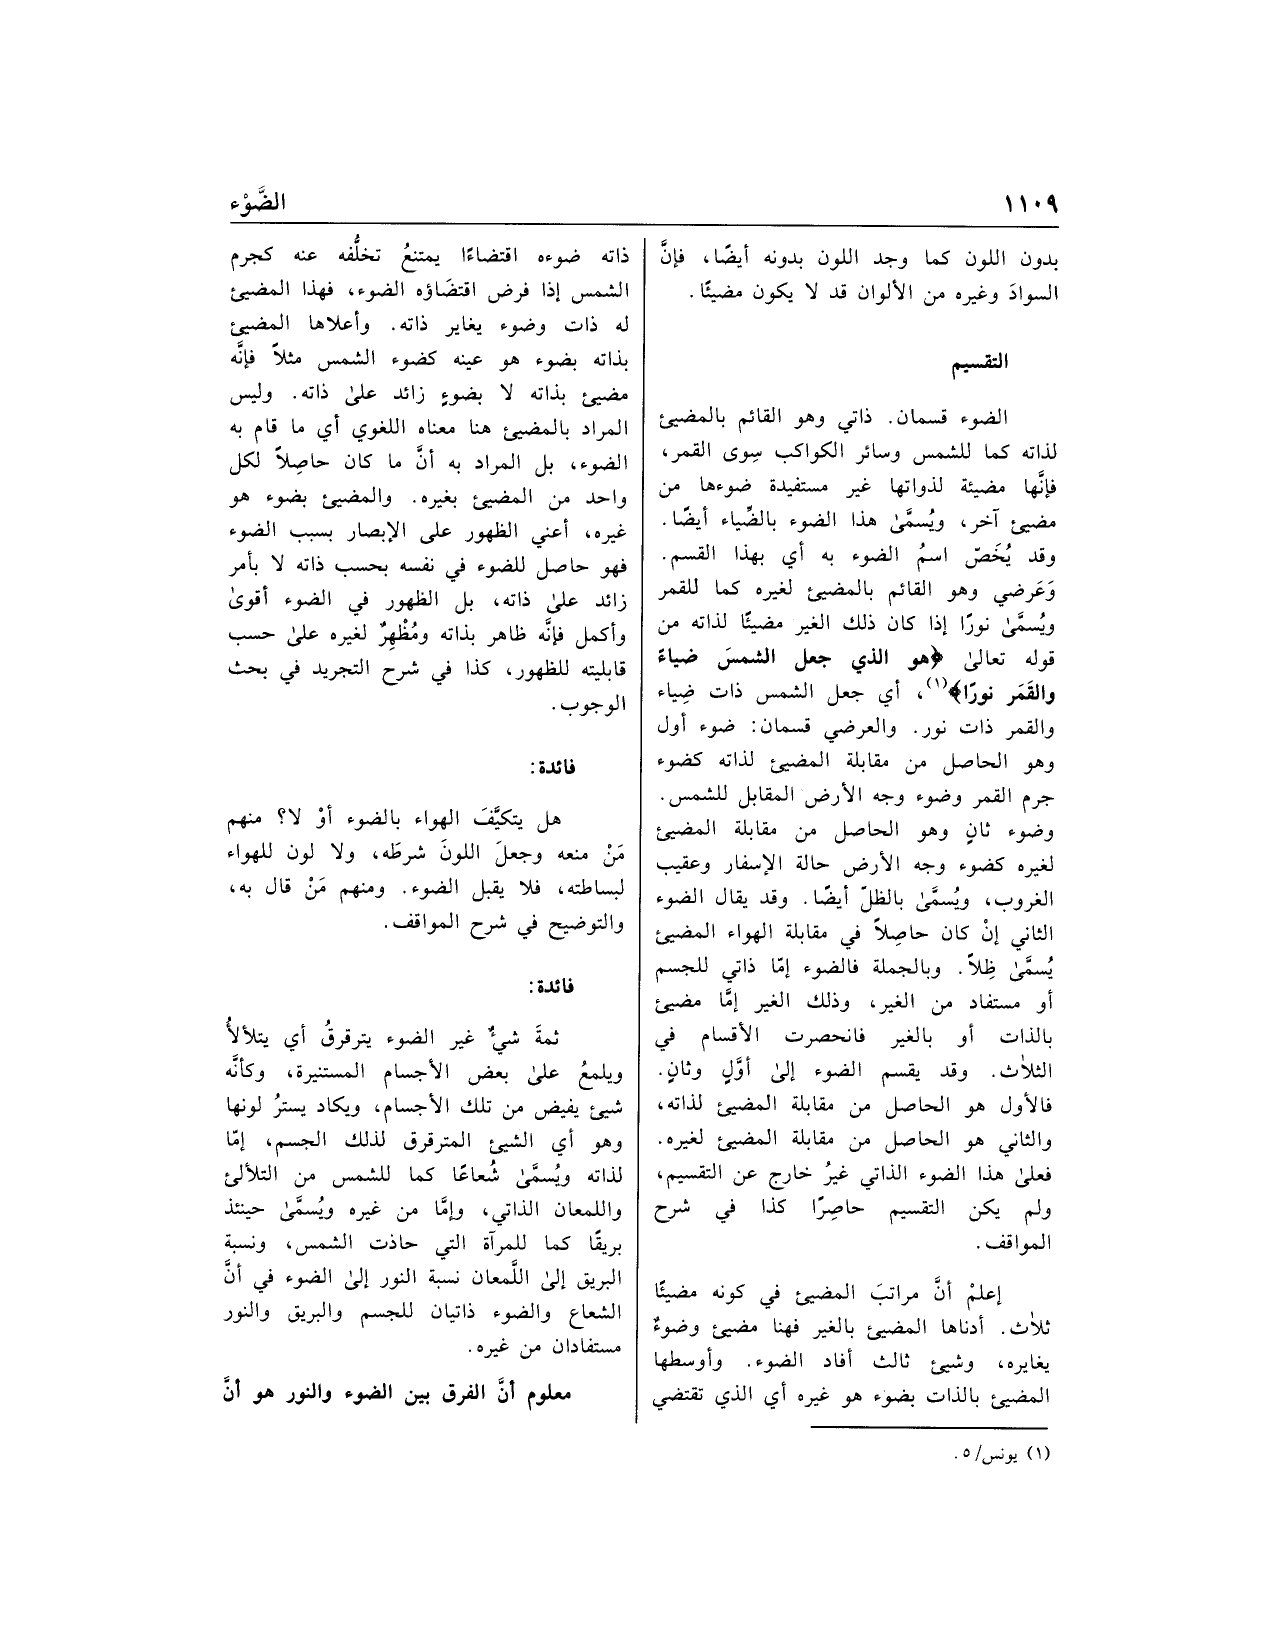 ١١٠٩
الضَّوْء
بدون اللون كما وجد اللون بدونه أيضًا، فإنَّ
السوادَ وغيره من الألوان قد لا يكون مضيئًا.
التقسيم
الضوء قسمان. ذاتي وهو القائم بالمضيئ
لذاته كما للشمس وسائر الكواكب سِوى القمر،
فإنَّها مضيئة لذواتها غير مستفيدة ضوءها من
مضيئ آخر، ويُسمَّىٰ هذا الضوء بالضِّياء أيضًا.
وقد يُخَصّ اسمُ الضوء به أي بهذا القسم.
وَعَرضي وهو القائم بالمضيئ لغيره كما للقمر
ويُسمَّىٰ نورًا إذا كان ذلك الغير مضيئًا لذاته من
قوله تعالىٰ ﴿هو الذي جعل الشمسَ ضياءً
والقَمَر نورًا﴾(١)، أي جعل الشمس ذات ضِياء
والقمر ذات نور. والعرضي قسمان: ضوء أول
وهو الحاصل من مقابلة المضيئ لذاته كضوء
جرم القمر وضوء وجه الأرض المقابل للشمس.
وضوء ثانٍ وهو الحاصل من مقابلة المضيئ
لغيره كضوء وجه الأرض حالة الإسفار وعقيب
الغروب، ويُسمَّىٰ بالظلّ أيضًا. وقد يقال الضوء
الثاني إنْ كان حاصِلاً في مقابلة الهواء المضيئ
يُسمَّىٰ ظِلاً. وبالجملة فالضوء إمّا ذاتي للجسم
أو مستفاد من الغير، وذلك الغير إمَّا مضيئ
بالذات أو بالغير فانحصرت الأقسام في
الثلاث. وقد يقسم الضوء إلىٰ أوَّلٍ وثانٍ.
فالأول هو الحاصل من مقابلة المضيئ لذاته،
والثاني هو الحاصل من مقابلة المضيئ لغيره.
فعلىٰ هذا الضوء الذاتي غيرُ خارج عن التقسيم،
ولم يكن التقسيم حاصِرًا كذا في شرح
المواقف.
إعلمْ أنَّ مراتبَ المضيئ في كونه مضيئًا
ثلاث. أدناها المضيئ بالغير فهنا مضيئ وضوءٌ
يغايره، وشيئ ثالث أفاد الضوء. وأوسطها
المضيئ بالذات بضوء هو غيره أي الذي تقتضي
(١) يونس/ ٥.
ذاته ضوءه اقتضاءًا يمتنعُ تخلُّفه عنه كجرم
الشمس إذا فرض اقتضَاؤه الضوء، فهذا المضيئ
له ذات وضوء يغاير ذاته. وأعلاها المضيئ
بذاته بضوء هو عينه كضوء الشمس مثلاً فإنَّه
مضيئ بذاته لا بضوءٍ زائد علىٰ ذاته. وليس
المراد بالمضيئ هنا معناه اللغوي أي ما قام به
الضوء، بل المراد به أنَّ ما كان حاصِلاً لكل
واحد من المضيئ بغيره. والمضيئ بضوء هو
غيره، أعني الظهور على الإبصار بسبب الضوء
فهو حاصل للضوء في نفسه بحسب ذاته لا بأمر
زائد علىٰ ذاته، بل الظهور في الضوء أقوىٰ
وأكمل فإنَّه ظاهر بذاته ومُظْهِرٌ لغيره علىٰ حسب
قابليته للظهور، كذا في شرح التجريد في بحث
الوجوب.
فائدة:
هل يتكيَّفَ الهواء بالضوء أوْ لا؟ منهم
مَنْ منعه وجعلَ اللونَ شرطَه، ولا لون للهواء
لبساطته، فلا يقبل الضوء. ومنهم مَنْ قال به،
والتوضيح في شرح المواقف.
فائدة:
ثمةَ شيئٌ غير الضوء يترقرقُ أي يتلألأُ
ويلمعُ علىٰ بعض الأجسام المستنيرة، وكأنَّه
شيئ يفيض من تلك الأجسام، ويكاد يسترُ لونها
وهو أي الشيئ المترقرق لذلك الجسم، إمّا
لذاته ويُسمَّىٰ شُعاعًا كما للشمس من التلألئ
واللمعان الذاتي، وإمَّا من غيره ويُسمَّىٰ حينئذ
بريقًا كما للمرآة التي حاذت الشمس، ونسبة
البريق إلىٰ اللَّمعان نسبة النور إلىٰ الضوء في أنَّ
الشعاع والضوء ذاتيان للجسم والبريق والنور
مستفادان من غيره.
معلوم أنَّ الفرق بين الضوء والنور هو أنَّ